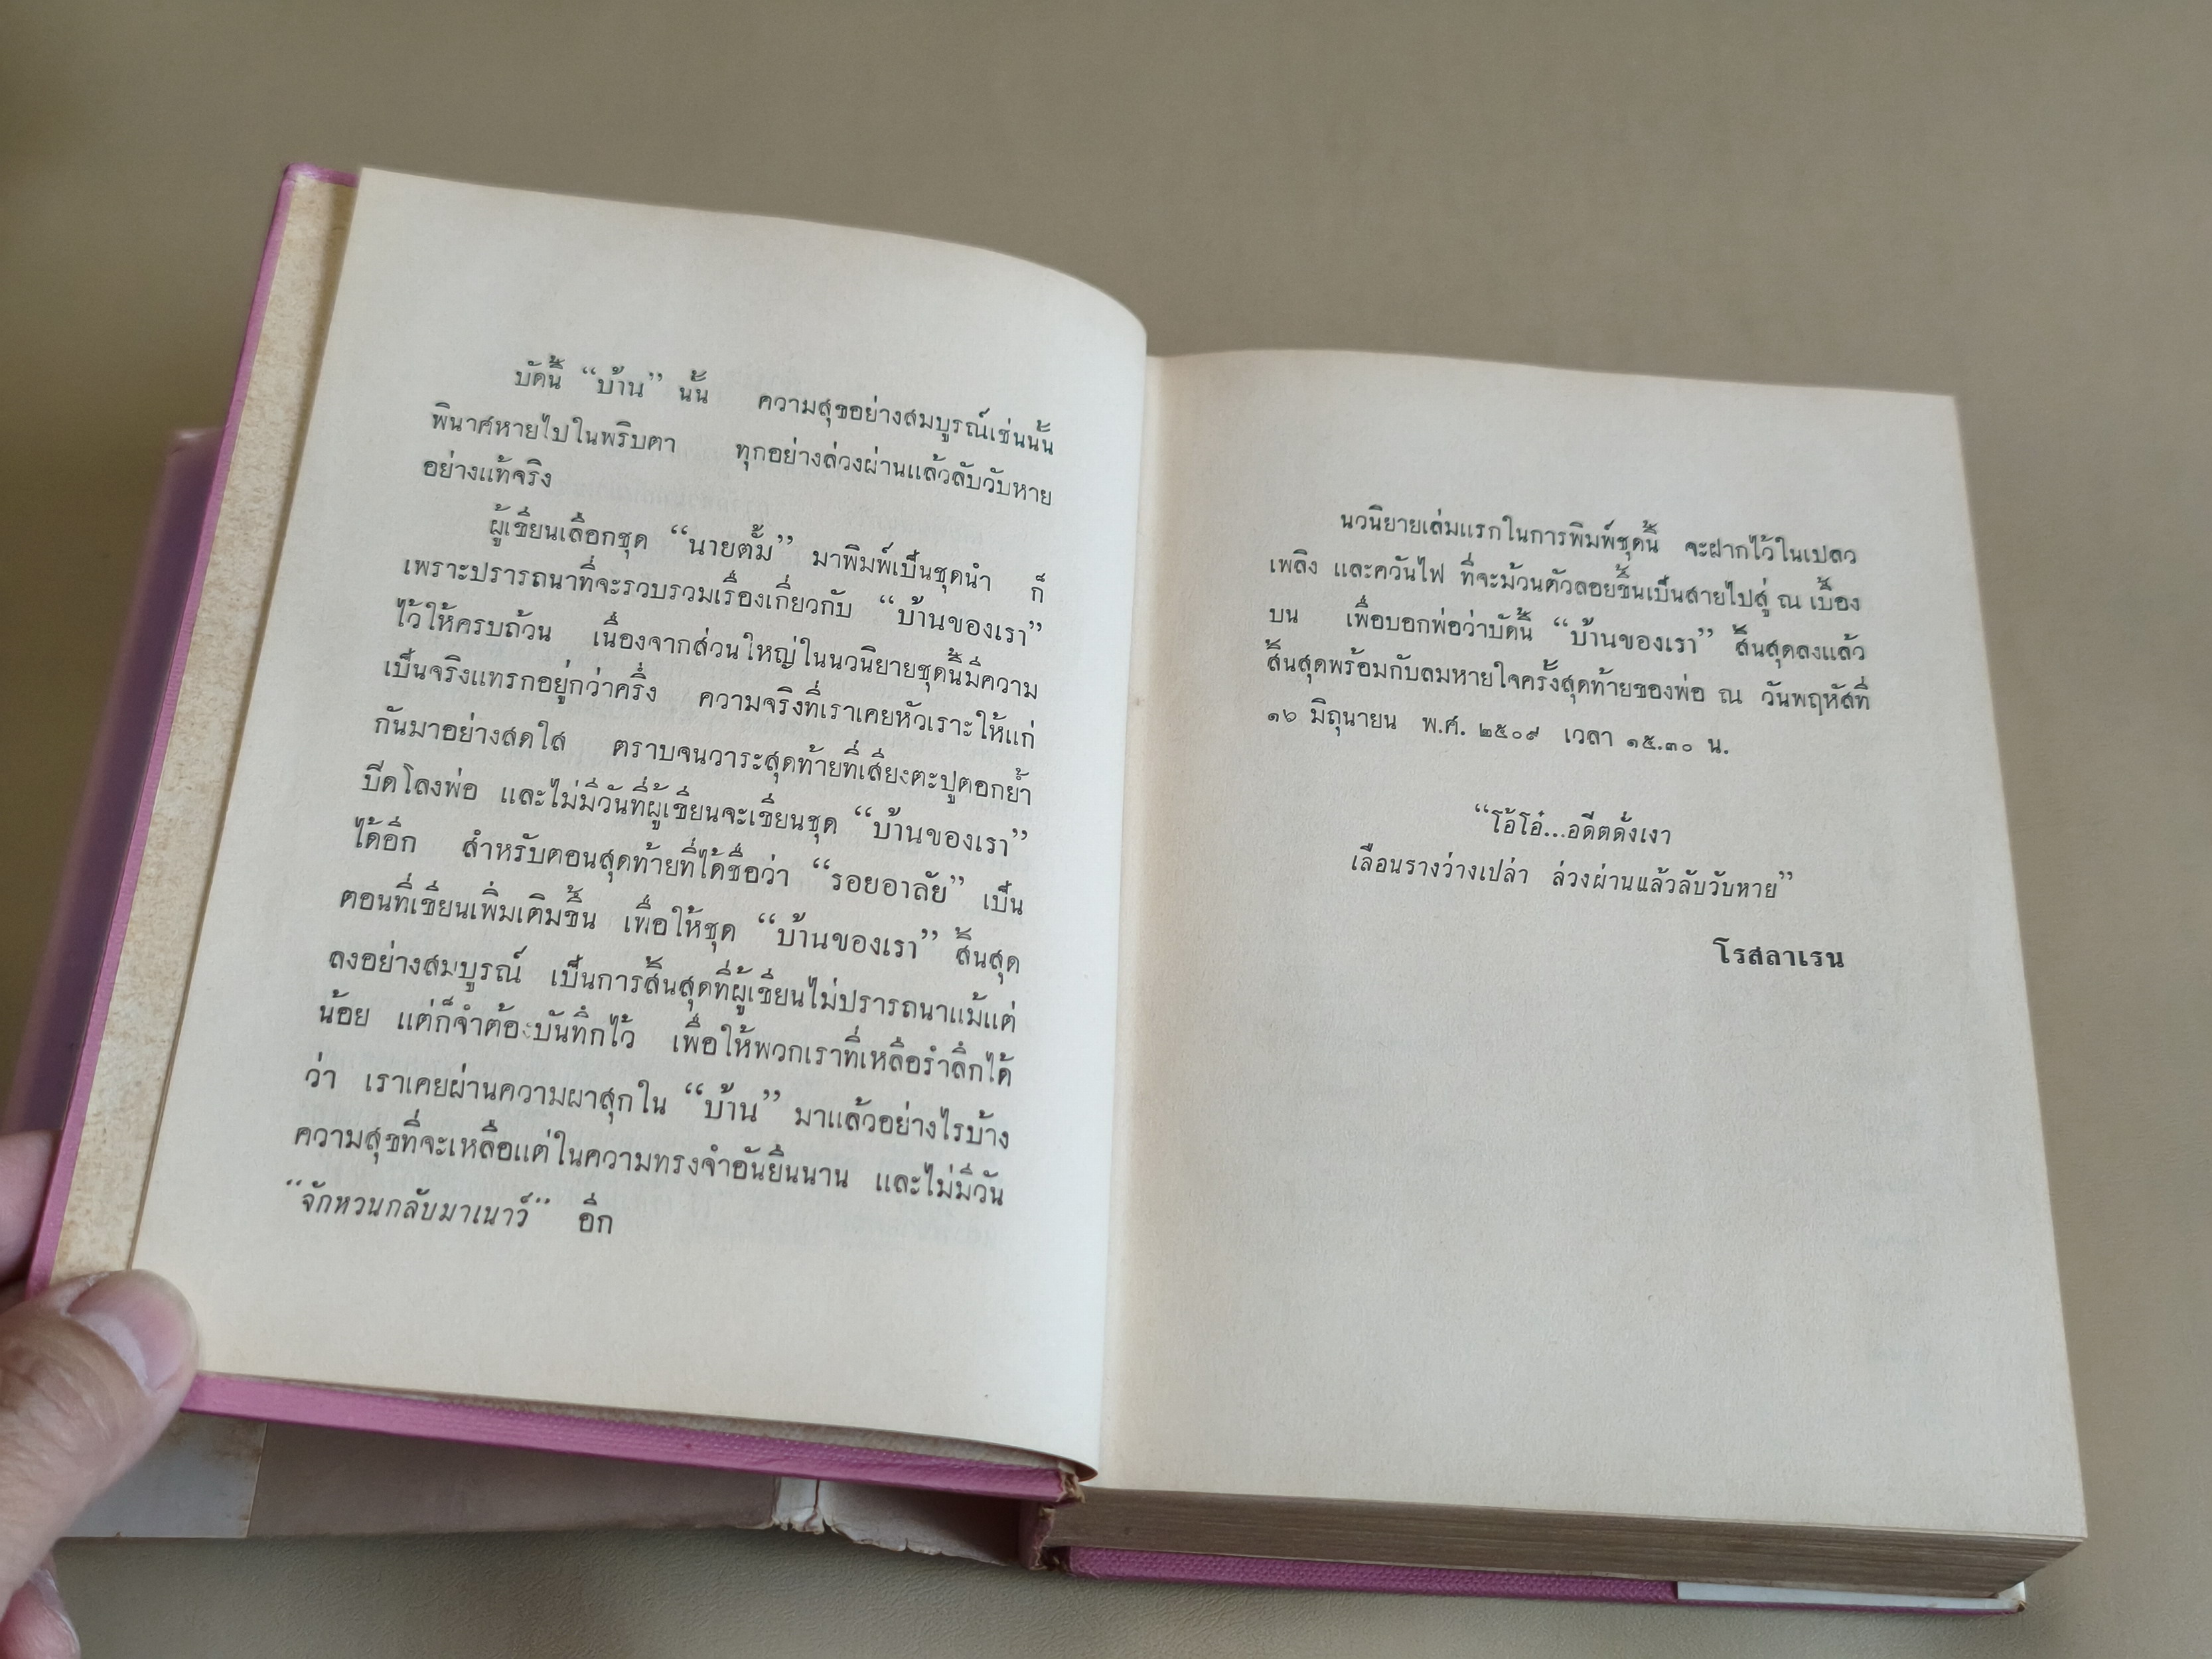 บัดนี้ “บ้าน” นั้น ความสุขอย่างสมบูรณ์เช่นนั้น
พินาศหายไปในพริบตา ทุกอย่างล่วงผ่านแล้วลับวับหาย
อย่างแท้จริง
ผู้เขียนเลือกชุด “นายตั้ม” มาพิมพ์เป็นชุดนำ ก็
เพราะปรารถนาที่จะรวบรวมเรื่องเกี่ยวกับ “บ้านของเรา”
ไว้ให้ครบถ้วน เนื่องจากส่วนใหญ่ในนวนิยายชุดนี้มีความ
เป็นจริงแทรกอยู่กว่าครึ่ง ความจริงที่เราเคยหัวเราะให้แก่
กันมาอย่างสดใส ตราบจนวาระสุดท้ายที่เสียงตะปูตอกย้ำ
ปิดโลงพ่อ และไม่มีวันที่ผู้เขียนจะเขียนชุด “บ้านของเรา”
ได้อีก สำหรับตอนสุดท้ายที่ได้ชื่อว่า “รอยอาลัย” เป็น
ตอนที่เขียนเพิ่มเติมขึ้น เพื่อให้ชุด “บ้านของเรา” สิ้นสุด
ลงอย่างสมบูรณ์ เป็นการสิ้นสุดที่ผู้เขียนไม่ปรารถนาแม้แต่
น้อย แต่ก็จำต้องบันทึกไว้ เพื่อให้พวกเราที่เหลือรำลึกได้
ว่า เราเคยผ่านความผาสุกใน “บ้าน” มาแล้วอย่างไรบ้าง
ความสุขที่จะเหลือแต่ในความทรงจำอันยืนนาน และไม่มีวัน
“จักหวนกลับมาเนาว์” อีก
นวนิยายเล่มแรกในการพิมพ์ชุดนี้ จะฝากไว้ในเปลว
เพลิง และควันไฟ ที่จะม้วนตัวลอยขึ้นเป็นสายไปสู่ ณ เบื้อง
บน เพื่อบอกพ่อว่าบัดนี้ “บ้านของเรา” สิ้นสุดลงแล้ว
สิ้นสุดพร้อมกับลมหายใจครั้งสุดท้ายของพ่อ ณ วันพฤหัสที่
๑๖ มิถุนายน พ.ศ. ๒๕๐๙ เวลา ๑๕.๓๐ น.
“โอ้โอ๋...อดีตดั่งเงา
เลือนรางว่างเปล่า ล่วงผ่านแล้วลับวับหาย”
โรสลาเรน